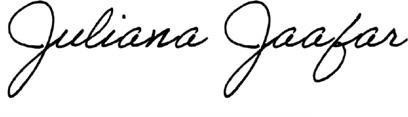 Juliana Jaafar